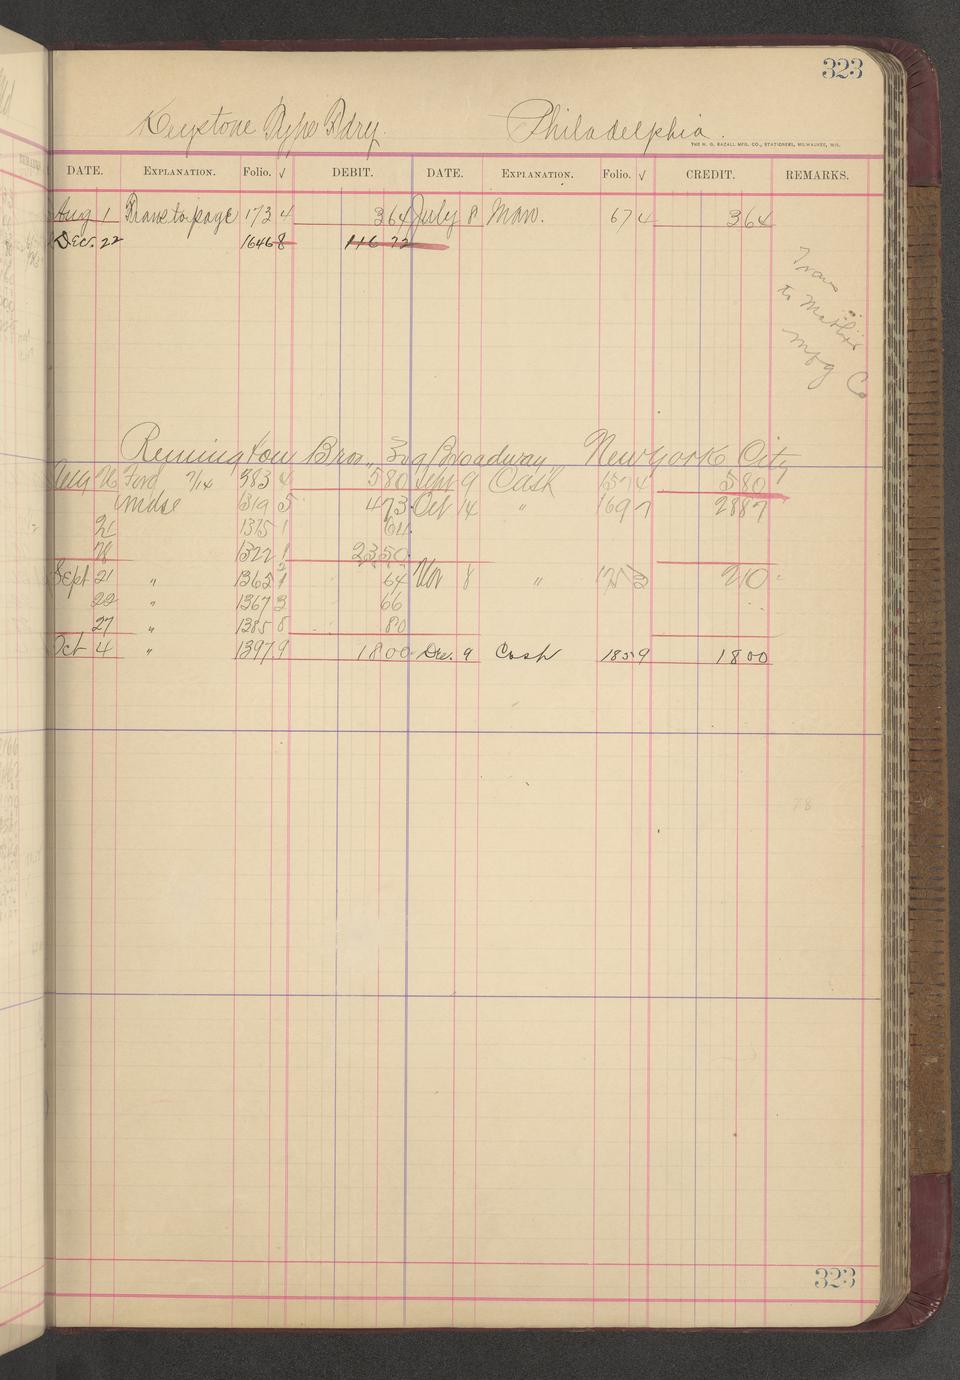 323
Keystone Type Fdry. Philadelphia.
THE H. G. RAZALL MFG. CO., STATIONERS, MILWAUKEE, WIS.
DATE. EXPLANATION. Folio. √ DEBIT. DATE. EXPLANATION. Folio. √ CREDIT. REMARKS.
Aug 1 Trans to page 173 4 364 July 8 Man. 67 4 364
Dec. 22 1646 8 116 72
Trans
to
Mfg Co
Remington Bros., Broadway New York City
583 4 580 Sept 9 Cash 157 4 580
Mdse 1319 5 473 Oct 14 " 169 7 2887
21 1315 1 64
28 1322 1 2350
Sept 21 " 64 Nov 8 " 175 3 210
22 " 1367 3 66
27 " 1385 8 80
Oct 4 " 1397 9 1800 Dec. 9 Cash 185 9 1800
323